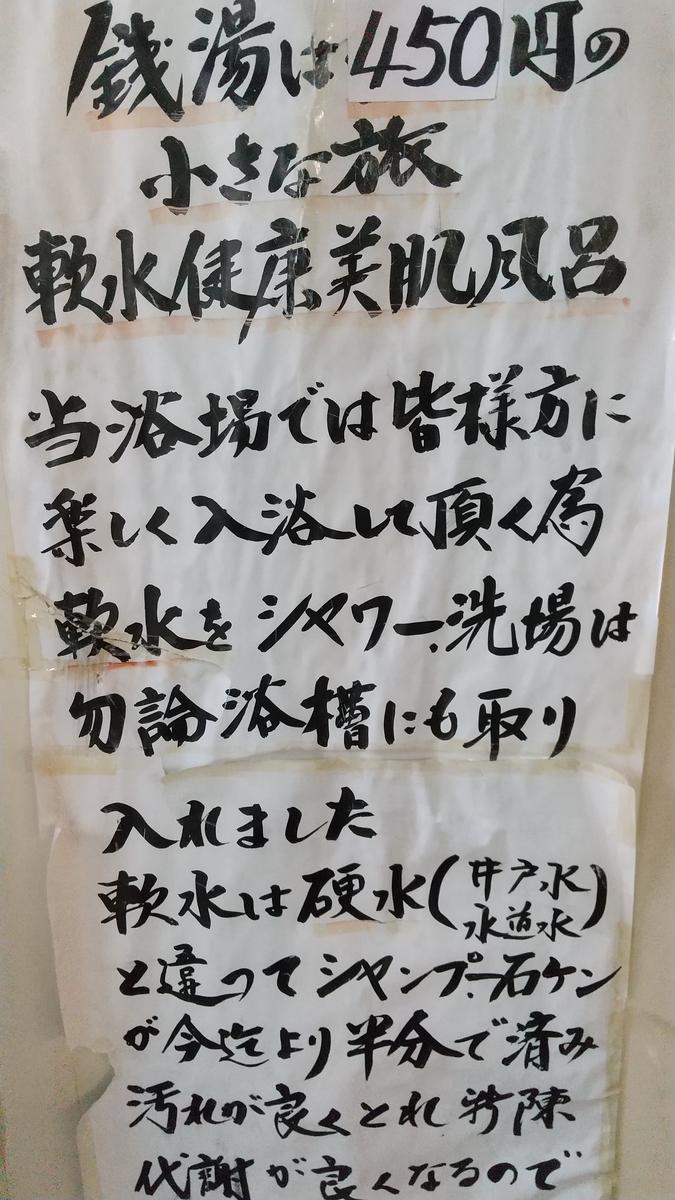 銭湯は450円の
小さな旅
軟水健康美肌風呂
当浴場では皆様方に
楽しく入浴して頂く為
軟水をシャワー、洗場は
勿論浴槽にも取り
入れました
軟水は硬水(井戸水
水道水)
と違ってシャンプー、石ケン
が今迄より半分で済み
汚れが良くとれ新陳
代謝が良くなるので